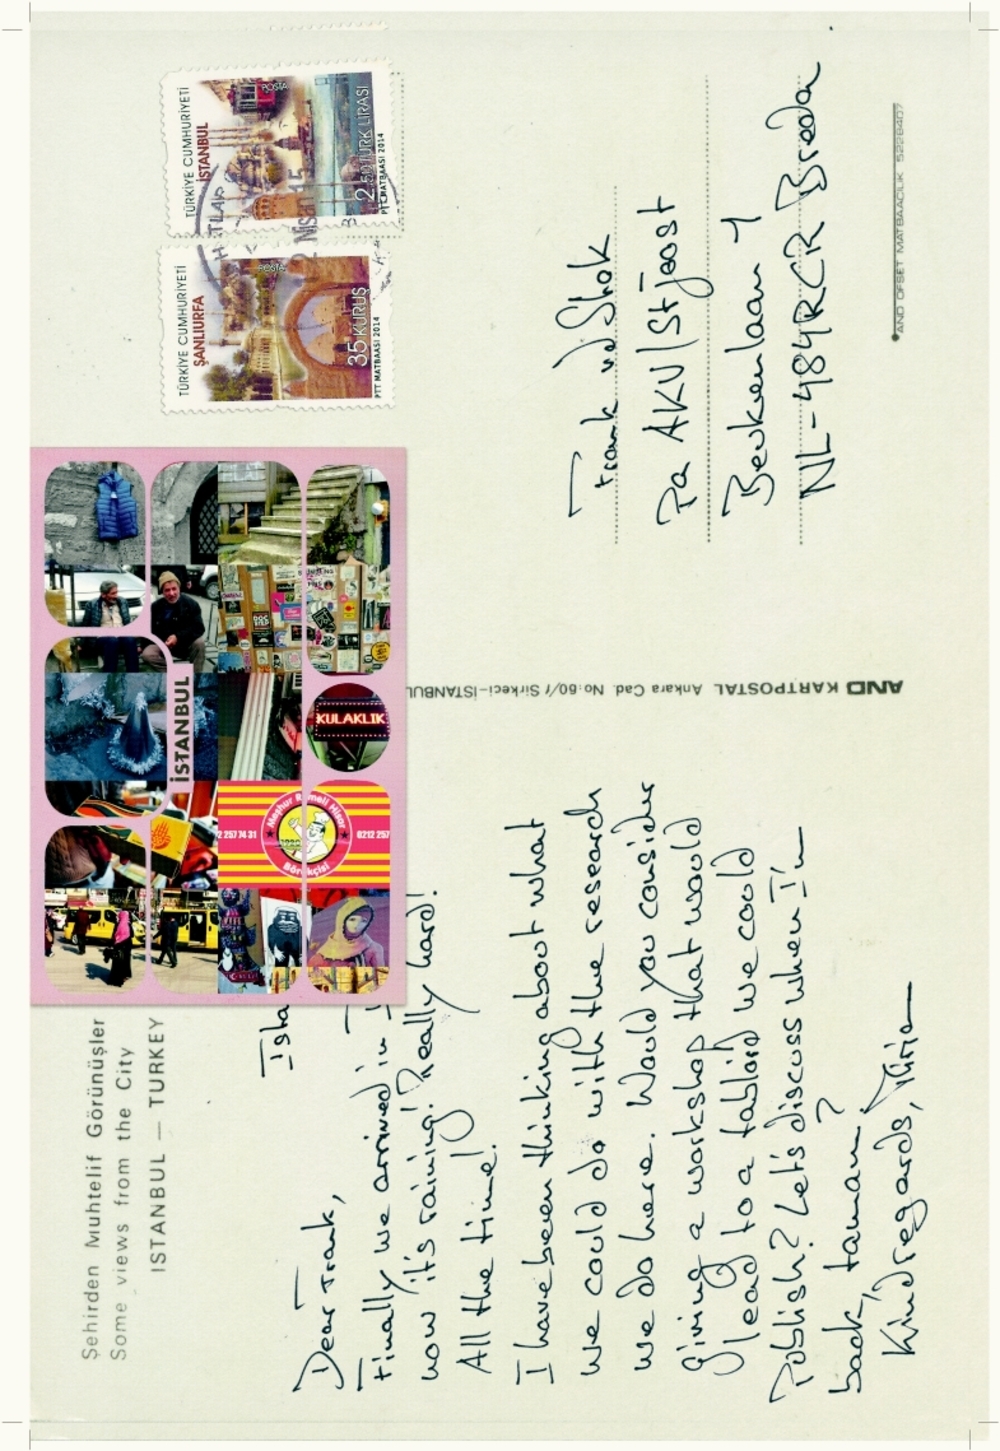 Şehirden Muhtelif Görünüşler
Some views from the City
ISTANBUL — TURKEY
Ista
Dear Frank,
Finally we arrived in I
now it's raining! Really hard!
All the time!
I have been thinking about what
we could do with the research
we do here. Would you consider
giving a workshop that would
lead to a tabloid we could
publish? Let's discuss when I'm
back, tamam?
Kind regards,
İSTANBUL
KULAKLIK
Meşhur Rumeli Hisar
Börekçisi
2 257 74 31
0212 257
AND KARTPOSTAL Ankara Cad. No: 60/1 Sirkeci-İSTANBUL
TÜRKİYE CUMHURİYETİ
ŞANLIURFA
POSTA
35 KURUŞ
PTT MATBAASI 2014
TÜRKİYE CUMHURİYETİ
İSTANBUL
POSTA
2.50 TÜRK LİRASI
PTT MATBAASI 2014
Nisan 15
Frank vd Stok
Pa AKV/St Joost
Beukenlaan 1
Breda
AND OFSET MATBAACILIK 5228407